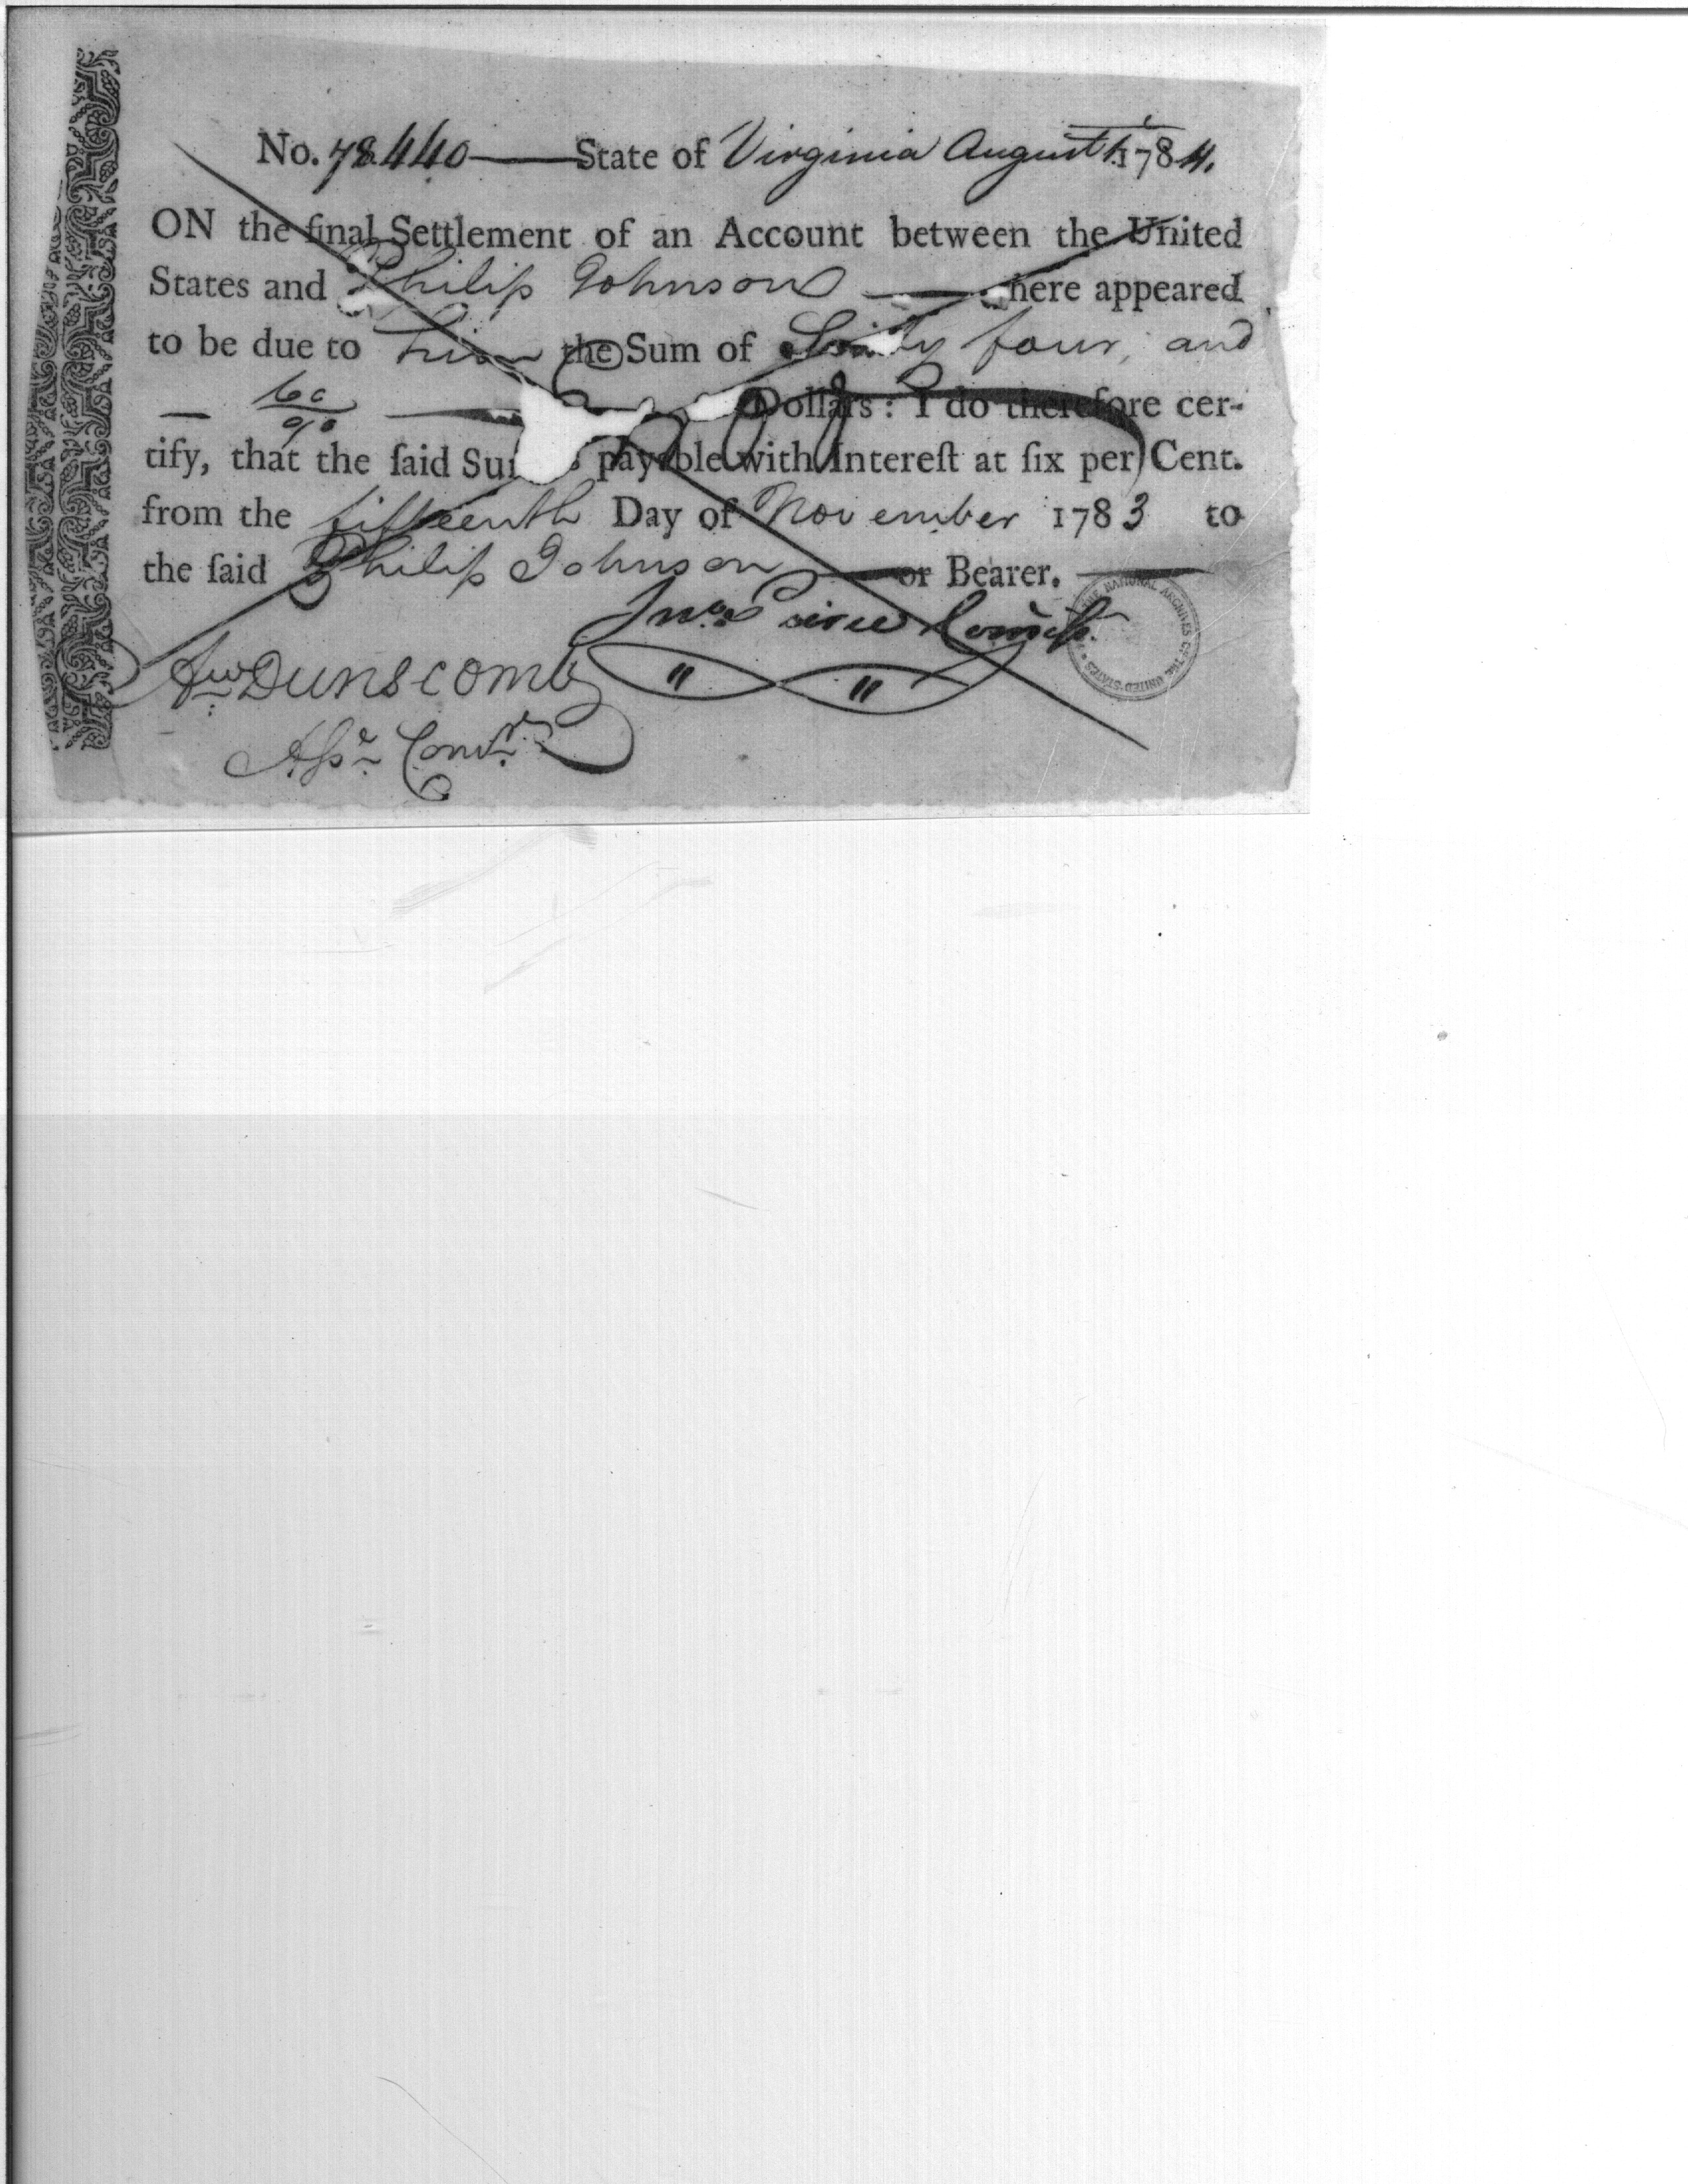 No. 78440 State of Virginia August 1. 1784.
ON the final Settlement of an Account between the United
States and Philip Johnson here appeared
to be due to him the Sum of four, and
60/90 Dollars: I do therefore cer-
tify, that the ſaid Su payable with Intereſt at ſix per Cent.
from the fifteenth Day of November 1783 to
the ſaid Philip Johnson or Bearer.
Jno. Pierce Commissr.
Aw DUNSCOMB
Asst. Comr.
THE NATIONAL ARCHIVES OF THE UNITED STATES